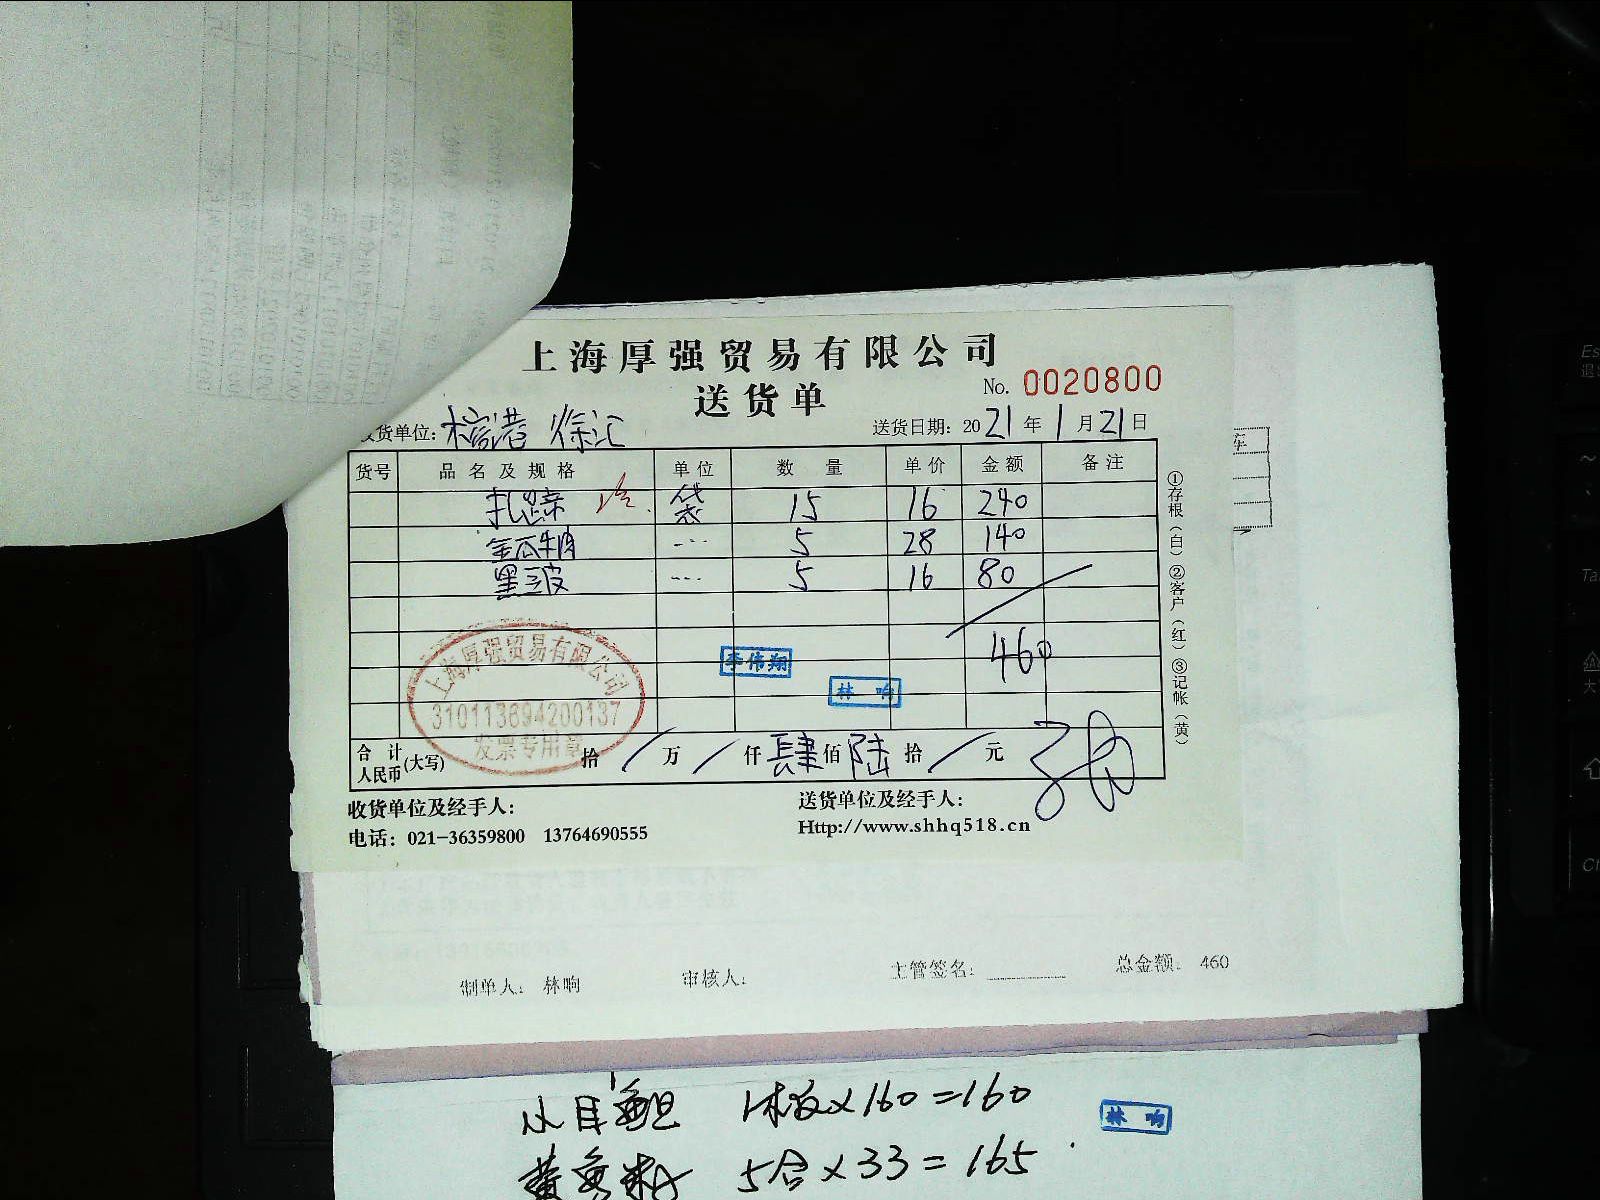 上海厚强贸易有限公司
送货单
No. 0020800
货单位: 徐汇
送货日期: 2021年1月21日
货号 品名及规格 单位 数量 单价 金额 备注
扎蹄 袋 15 16 240
金瓜牛肉 --- 5 28 140
黑三皮 --- 5 16 80
460
李伟翔
林响
上海厚强贸易有限公司
310113694200137
发票专用章
合计人民币(大写) 拾/万/仟肆佰陆拾/元
①存根(白)②客户(红)③记帐(黄)
收货单位及经手人:
送货单位及经手人:
电话: 021-36359800 13764690555
Http://www.shhq518.cn
制单人: 林响 审核人: 主管签名: 总金额: 460
160=160
林响
5合×33=165